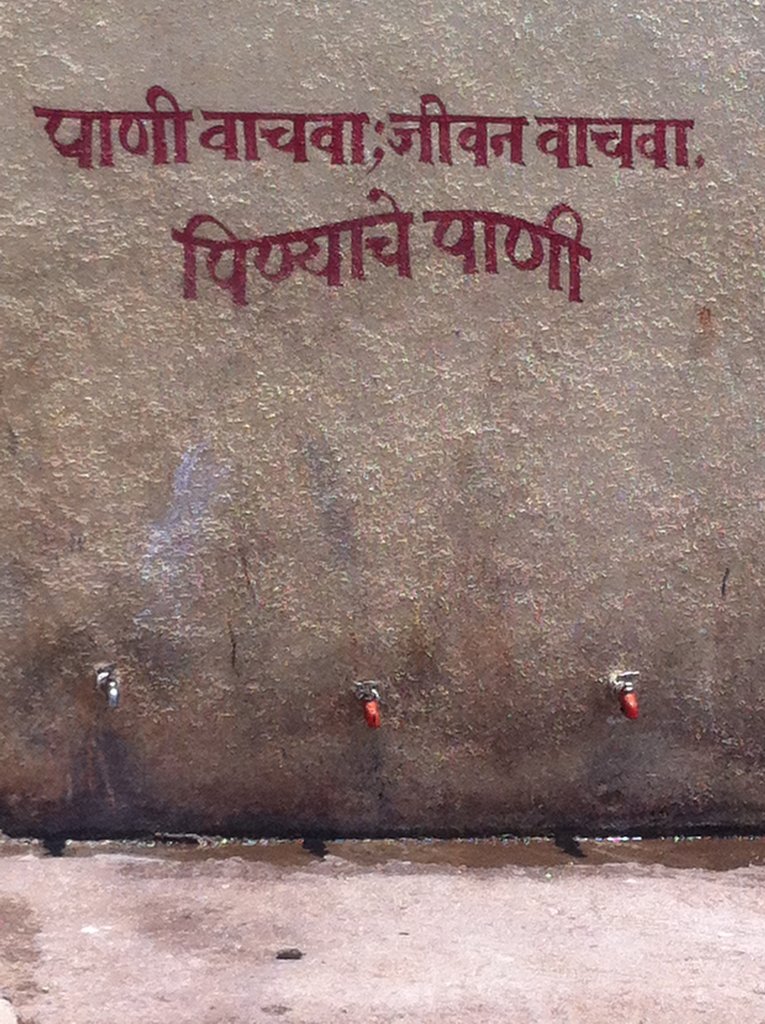 पाणी वाचवा;जीवन वाचवा.
पिण्याचे पाणी